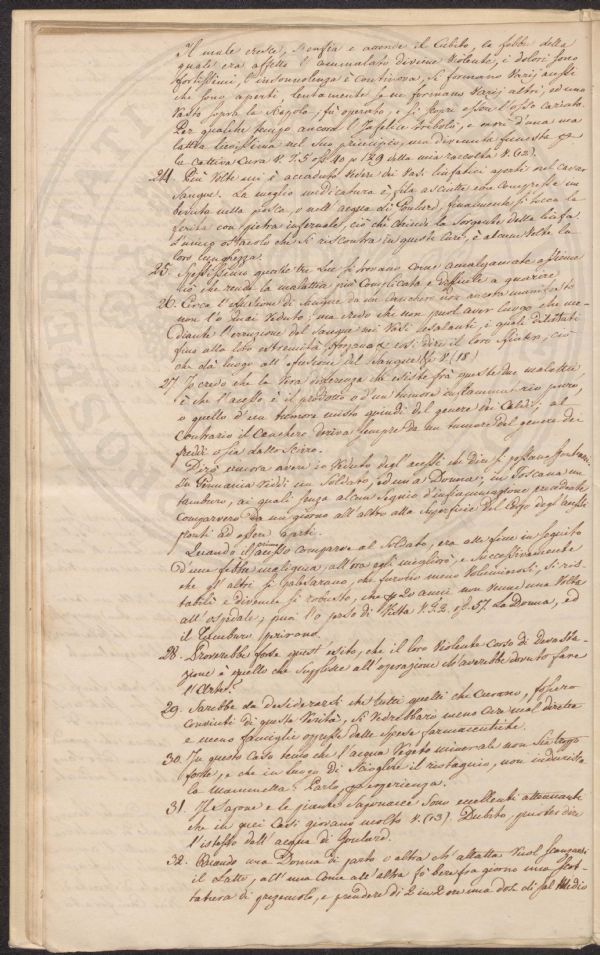 Il male cresce, si gonfia e ascende il Cubito, la febbre della
quale era affetto l'ammalato diviene violente, i dolori sono
fortissimi, l'insonnolenza è continova, si formano varj ascessi
che sono aperti, lentamente se ne formano varj altri, ed uno
vasto sopra la fù operato, e si scoprì essere l'osso cariato.
Per qualche tempo ancora l'infelice tribolò, e morì d'una ma
lattia lievissima nel suo principio, ma divenuta funesta p
la cattiva Cura V. T. 5 oss. 40 p. 129 della mia raccolta V. (12).
24. Più volte mi è accaduto vedere dei Vasi linfatici aperti nel cavar
Sangue. La meglio medicatura è fila asciutte con Compresse im
bevuta nella posca, o nell'acqua di Goulard, finalmente si tocca la
ferita con pietra infernale, ciò che chiude la sorgente della linfa.
L'unico ostacolo che si riscontra in queste cure, è alcune volte la
loro lunghezza.
25. Spessissimo queste tre Lue si trovano come amalgamate assieme
ciò che rende la malattia più Complicata e difficile a guarire.
26. Circa l'effusioni di Sangue da un Canchero non ancora manifesto
non l'ò mai veduto, ma credo che non puol aver luogo che me-
diante l'erruzione del sangue nei Vasi esalanti, i quali dilatati
fino alla loro estremità sforzano così dire il loro sfinter, ciò
che dà luogo all'effusione del Sangue V. (18)
27. Io credo che la vera differenza che esiste frà queste due malattie
è che l'ascesso è il prodotto o d'un tumore infiammatorio puro,
o quello d'un tumore misto quindi del genere dei Caldi; al
Contrario il Canchero deriva sempre da un tumore del genere dei
freddi o sia dallo Scirro.
Dirò ancora avere io veduto degl'ascessi che dire si possono spontanei.
In Germania viddi un Soldato, ed una Donna, in Toscana un
tamburo, ai quali senza alcun segno d'infiammazione precedente
Comparvero da un giorno all'altro alla Superficie del Corpo degl'ascessi
pronti ad essere aperti.
Quando il primo ascesso comparve al Soldato, era alla fine in seguito
d'una febbre maligna, all'ora egli migliorò, e successivamente
che gl'altri si palesarono, che furono meno voluminosi, si ris-
tabilì e divenne sì robusto, che p 20 anni non venne una volta
all'ospedale, puoi l'ò perso di vista V. T. 2. oss. 57. La Donna, ed
il Tamburo perirono.
28. Proverebbe forse quest'esito, che il loro violente corso di devasta-
zione è quello che supplisce all'operazione ch'averebbe dovuto fare
l'Arte?
29. Sarebbe da desiderarsi che tutti quelli che curano, fossero
Convinti di questa verità, si vedrebbero meno Cure mal dirette
e meno famiglie oppresse dalle spese farmaceutiche.
30. In questo Caso temo che l'acqua vegeto minerale non sia troppo
forte, e che in luogo di sciogliere il ristagnio, non indurisca
la mammella: Parlo p esperienza.
31. Il Sapone e le piante Saponacee sono eccellenti attenuanti
che in quei Casi giovano molto V. (13). Dubito, poter dire
l'istesso dell'acqua di Goulard.
32. Quando una Donna di parto o altra ch'allatta vuol scansarsi
il Latte, all'una Come all'altra fò bere fra giorno una scot-
tatura di prezzemolo, e prendere di 2 in 2 ore una dosi di sal Medio